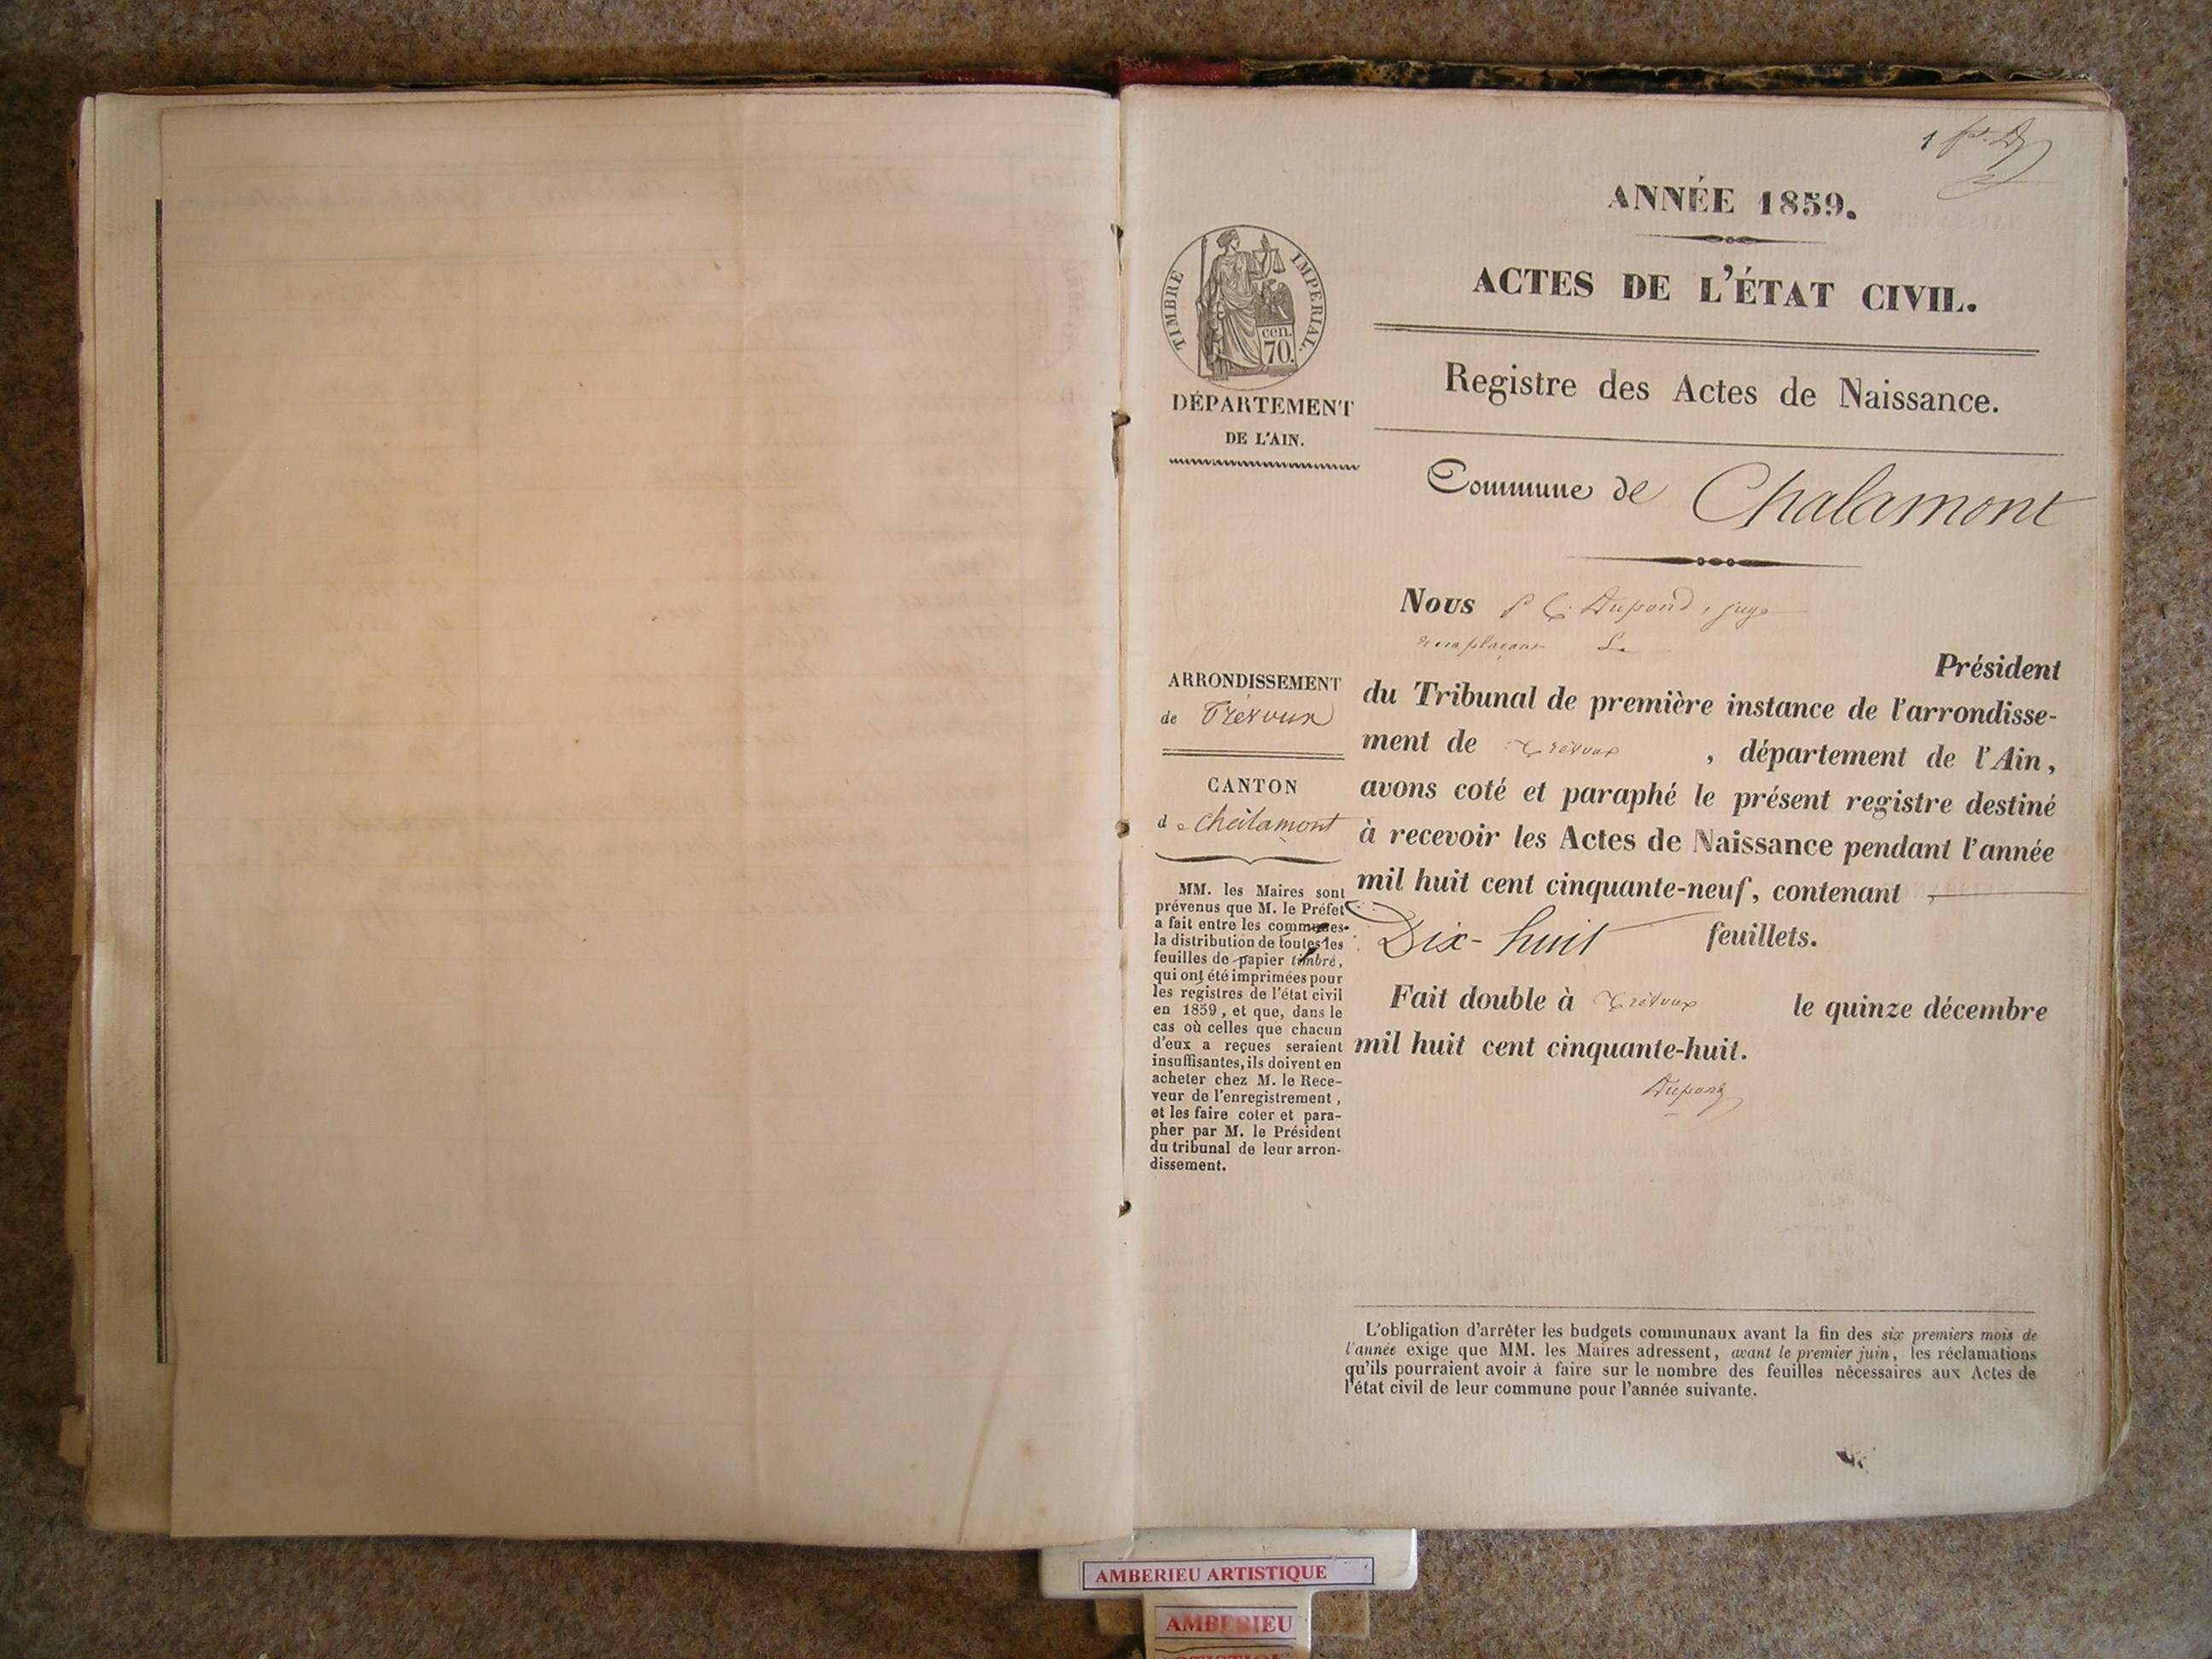 ANNÉE 1859.
ACTES DE L'ÉTAT CIVIL.
TIMBRE IMPERIAL.
cen.
70.
DÉPARTEMENT
DE L'AIN.
Registre des Actes de Naissance.
Commune de Chalamont
Nous Dupond, juge
remplaçant Le
Président
du Tribunal de première instance de l'arrondisse-
ment de Trévoux , département de l'Ain,
avons coté et paraphé le présent registre destiné
à recevoir les Actes de Naissance pendant l'année
mil huit cent cinquante-neuf, contenant
Dix-huit feuillets.
Fait double à Trévoux le quinze décembre
mil huit cent cinquante-huit.
Dupond
ARRONDISSEMENT
de Trévoux
CANTON
de Chalamont
MM. les Maires sont
prévenus que M. le Préfet
a fait entre les communes
la distribution de toutes les
feuilles de papier timbré,
qui ont été imprimées pour
les registres de l'état civil
en 1859, et que, dans le
cas où celles que chacun
d'eux a reçues seraient
insuffisantes, ils doivent en
acheter chez M. le Rece-
veur de l'enregistrement,
et les faire coter et para-
pher par M. le Président
du tribunal de leur arron-
dissement.
L'obligation d'arrêter les budgets communaux avant la fin des six premiers mois de
l'année exige que MM. les Maires adressent, avant le premier juin, les réclamations
qu'ils pourraient avoir à faire sur le nombre des feuilles nécessaires aux Actes de
l'état civil de leur commune pour l'année suivante.
AMBERIEU ARTISTIQUE
AMBERIEU